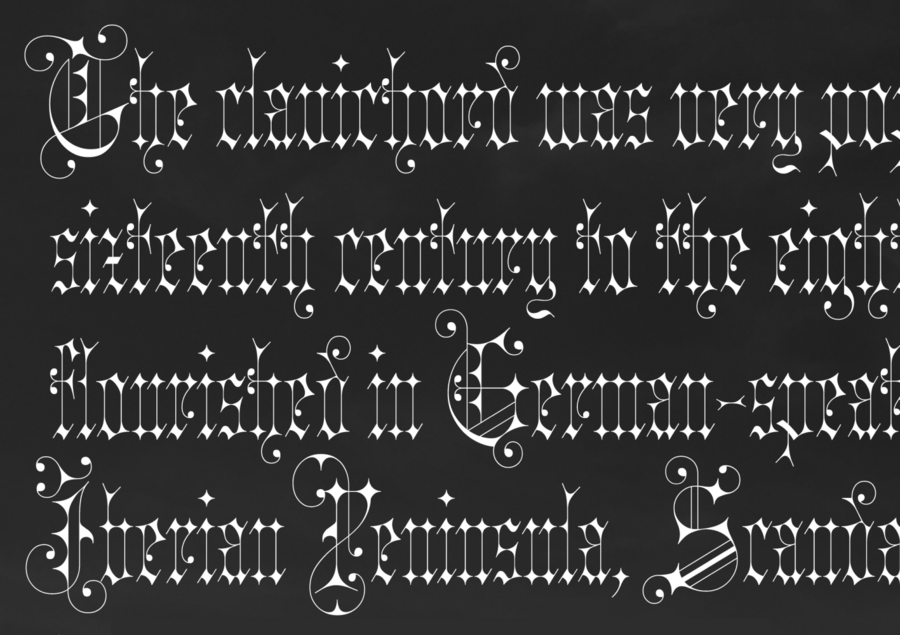 The clavichord was very pop
sixteenth century to the eight
flourished in German-speak
Iberian Peninsula, Scanda